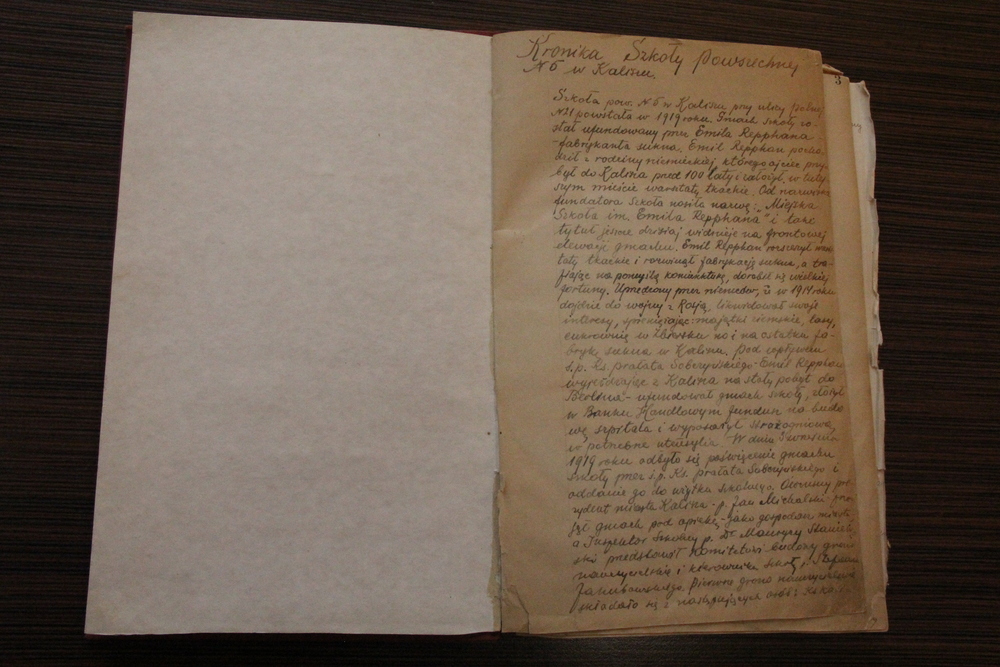 Kronika Szkoły Powszechny
N 5 w Kaliszu.
3
Szkoła pow. N 5 w Kaliszu przy ulicy
N21 powstała w 1919 roku. Gmach szkoły zo-
stał ufundowany przez Emila Repphana
-fabrykanta sukna. Emil Repphan pocho-
dził z rodziny niemieckiej, którego ojciec przy-
był do Kalisza przed 100 laty i założył w tutej-
szym mieście warsztaty tkackie. Od nazwiska
fundatora szkoła nosiła nazwę: „Miejska
Szkoła im. Emila Repphana" i taki
tytuł jeszcze dzisiaj widnieje na frontowej
elewacji gmachu. Emil Repphan rozszerzył warsz-
taty tkackie i rozwinął fabrykację sukna, a tra-
fiając na pomyślą koniunkturę, dorobił się wielkiej
fortuny. Uprzedzony przez niemców, iż w 1914 roku
dojdzie do wojny z Rosją, likwidował swoje
interesy, majątki ziemskie, lasy,
cukrownię w Zbiersku no i na ostatku fa-
brykę sukna w Kaliszu. Pod wpływem
ś.p. Ks. prałata Sobczyńskiego-Emil Repphan
wyjeżdżając z Kalisza na stały pobyt do
Berlina - ufundował gmach szkoły, złożył
w Banku Handlowym fundusz na budo
wę szpitala i wyposażył straż ogniową
w potrzebne utensylia. W dniu września
1919 roku odbyło się poświęcenie gmachu
szkoły przez ś.p. Ks. prałata Sobczyńskiego i
oddanie go do użytku szkolnego. Ówczesny pre-
zydent miasta Kalisza - p. Jan Michalski
gmach pod opiekę - jako gospodarz miasta
a Inspektor Szkolny p. Dr Maurycy
ski przedstawił Komitetowi budowy grono
nauczycielskie i kierownika szkoły p. Stefana
Jakubowskiego. Pierwsze grono nauczycielskie
składało się z następujących osób: